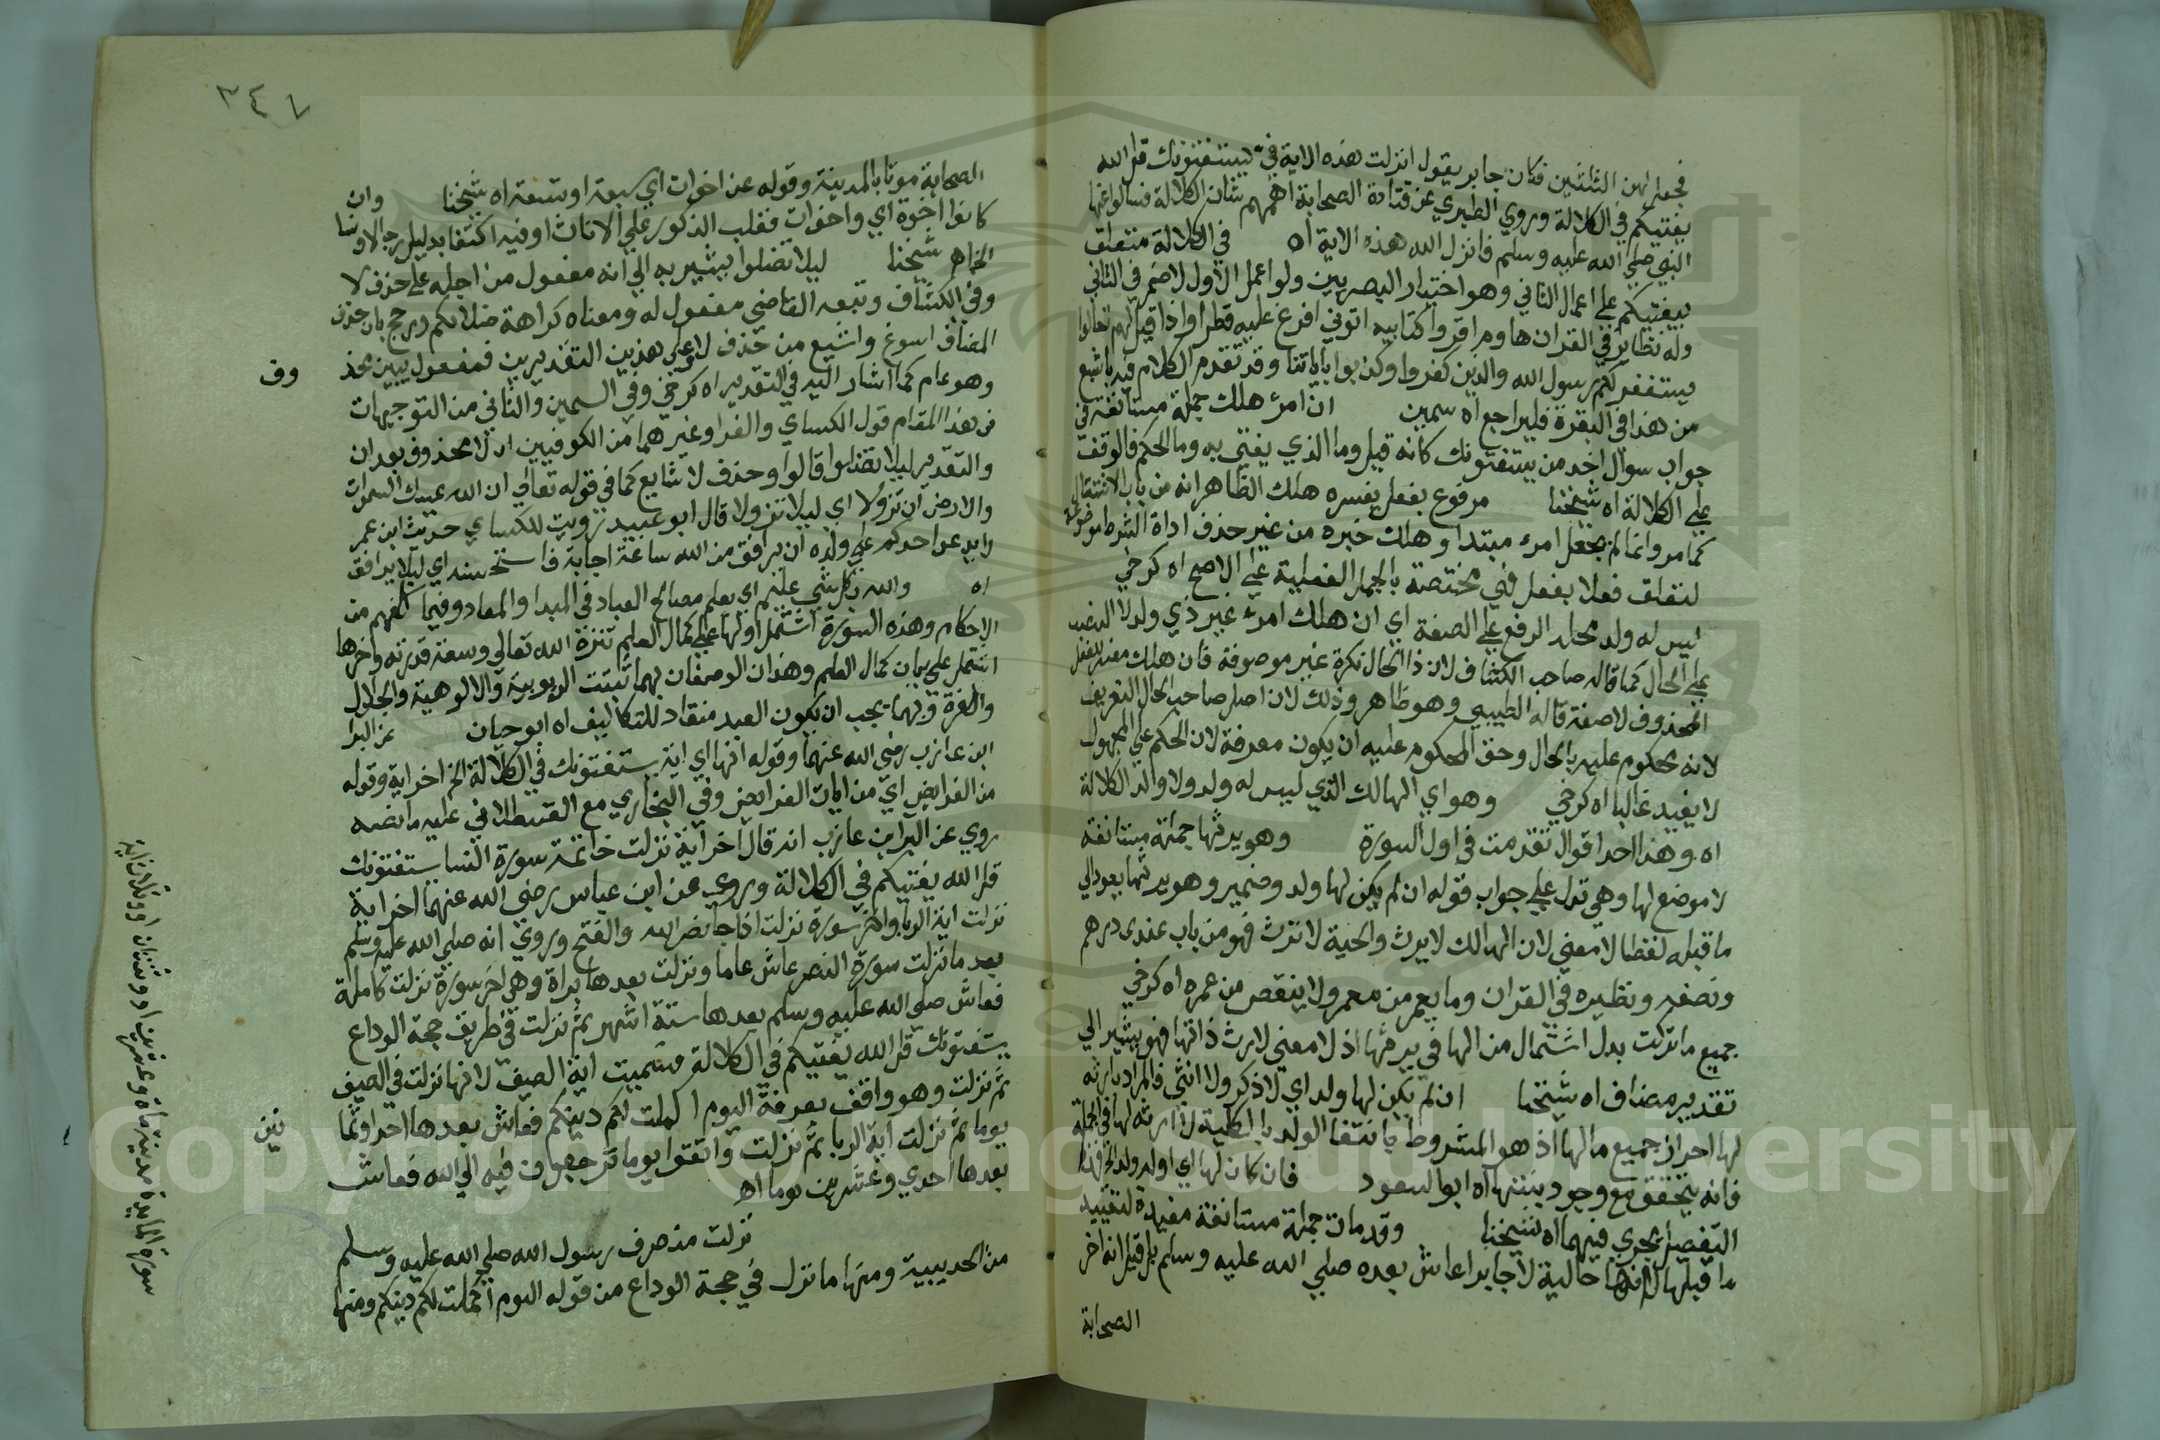 فجعل لهن الثلثين فكان جابر يقول انزلت هذه الاية في يستفتونك قل الله
يفتيكم في الكلالة وروي الطبري عن قتادة الصحابة اهمهم شان الكلالة فسالوا عنها
النبي صلي الله عليه وسلم فانزل الله هذه الاية اه في الكلالة متعلق
بيفتيكم علي اعمال الثاني وهو اختيار البصريين ولو اعمل الاول لاضمر في الثاني
وله نظاير في القران هاوم اقروا كتابيه اتوني افرغ عليه قطرا واذا قيل لهم تعالوا
يستغفر لكم رسول الله والذين كفروا وكذبوا باياتنا وقد تقدم الكلام فيه باشبع
من هذا في البقرة فليراجع اه سمين ان امرء هلك جملة مستانفة في
جواب سوال اخذ من يستفتونك كانه قيل وما الذي يفتي به وما الحكم فالوقف
علي الكلالة اه شيخنا مرفوع بفعل يفسره هلك الظاهر انه من باب الاشتغال
كما مر وانما لم يجعل امرء مبتدا وهلك خبره من غير حذف اداة الشرط موضوعة
لتعلق فعل بفعل فهي مختصة بالجمل الفعلية علي الاصح اه كرخي
ليس له ولد محله الرفع علي الصفة اي ان هلك امرء غير ذي ولد لا النصب
علي الحال كما قاله صاحب الكشاف لان ذا الحال نكرة غير موصوفة فان هلك مفسر للفعل
المحذوف لا صفة قاله الطيبي وهو ظاهر وذلك لان اصل صاحب الحال التعريف
لانه محكوم عليه بالحال وحق المحكوم عليه ان يكون معرفة لان الحكم علي المجهول
لا يفيد غالبا اه كرخي وهو اي الهالك الذي ليس له ولد ولا والد الكلالة
اه وهذا احد اقوال تقدمت في اول السورة وهو يرثها جملة مستانفة
لا موضع لها وهي تدل علي جواب قوله ان لم يكن لها ولد وضمير وهو يرثها يعود الي
ما قبله لفظا لا معني لان الهالك لا يرث والحية لا ترث فهو من باب عندي درهم
ونصفه ونظيره في القران وما يعمر من معمر ولا ينقص من عمره اه كرخي
جميع ما تركت بدل اشتمال من الها في يرثها اذ لا معني لارث ذاتها فهو يشير الي
تقدير مضاف اه شيخنا ان لم يكن لها ولد اي لا ذكر ولا انثي فالمراد بارثه
لها احراز جميع مالها اذ هو المشروط بانتفا الولد بالكلية لا ارثه لها في الجملة
فانه يتحقق مع وجود بنتها اه ابو السعود فان كان لها اي او له ولد الخ فهذا
التفصيل يجري فيهما اه شيخنا وقد مات جملة مستانفة مفيدة لتقييد
ما قبلها لا انها حالية لا جابرا عاش بعده صلي الله عليه وسلم بل قيل انه اخر
الصحابة
٣٤٧
الصحابة موتا بالمدينة وقوله عن اخوات اي سبعة او تسعة اه شيخنا وان
كانوا اخوة اي واخوات فغلب الذكور علي الاناث او فيه اكتفا بدليل رجالا ونسا
الخ اه شيخنا ليلا تضلوا يشير به الي انه مفعول من اجله علي حذف لا
وفي الكشاف وتبعه القاضي مفعول له ومعناه كراهة ضلالكم ورجح بان حذف
المضاف اسوغ واشيع من حذف لا وعلي هذين التقديرين فمفعول يبين محذ
وف
وهو عام كما اشار اليه في التقدير اه كرخي وفي السمين والثاني من التوجيهات
في هذا المقام قول الكساي والفرا وغيرهما من الكوفيين ان لا محذوفة بعد ان
والتقدير ليلا تضلوا قالوا وحذف لا شايع كما في قوله تعالي ان الله يمسك السموات
والارض ان تزولا اي ليلا تزولا قال ابو عبيد رويت للكساي حديث ابن عمر
لا يدعو احدكم علي ولده ان يوافق من الله ساعة اجابة فاستحسنه اي ليلا يوافق
اه والله بكل شي عليم اي يعلم مصالح العباد في المبدا والمعاد وفيما كلفهم من
الاحكام وهذه السورة اشتمل اولها علي كمال العلم تنزه الله تعالي وسعة قدرته واخرها
اشتمل علي بيان كمال العلم وهذان الوصفان بهما ثبتت الربوبية والالوهية والجلال
والعزة وبهما يجب ان يكون العبد منقادا للتكاليف اه ابو حيان عن البرا
ابن عازب رضي الله عنهما وقوله انها اي اية يستفتونك في الكلالة الخ اخر اية وقوله
من الفرايض اي من ايات الفرايض وفي البخاري مع القسطلاني عليه ما نصه
روي عن البرا بن عازب انه قال اخر اية نزلت خاتمة سورة النسا يستفتونك
قل الله يفتيكم في الكلالة وروي عن ابن عباس رضي الله عنهما اخر اية
نزلت اية الربا واخر سورة نزلت اذا جا نصر الله والفتح وروي انه صلي الله عليه وسلم
بعد ما نزلت سورة النصر عاش عاما ونزلت بعدها براة وهي اخر سورة نزلت كاملة
فعاش صلي الله عليه وسلم بعدها ستة اشهر ثم نزلت في طريق حجة الوداع
يستفتونك قل الله يفتيكم في الكلالة فسميت اية الصيف لانها نزلت في الصيف
ثم نزلت وهو واقف بعرفة اليوم اكملت لكم دينكم فعاش بعدها احدا وثما
نين
يوما ثم نزلت اية الربا ثم نزلت واتقوا يوما ترجعون فيه الي الله فعاش
بعدها احدي وعشرين يوما اه
نزلت منصرف رسول الله صلي الله عليه وسلم
من الحديبية ومنها ما نزل في حجة الوداع من قوله اليوم اكملت لكم دينكم ومنها
سورة المايدة مدنية ماة وعشرون او وثنتان او وثلاث اية
Copyright © King Saud University